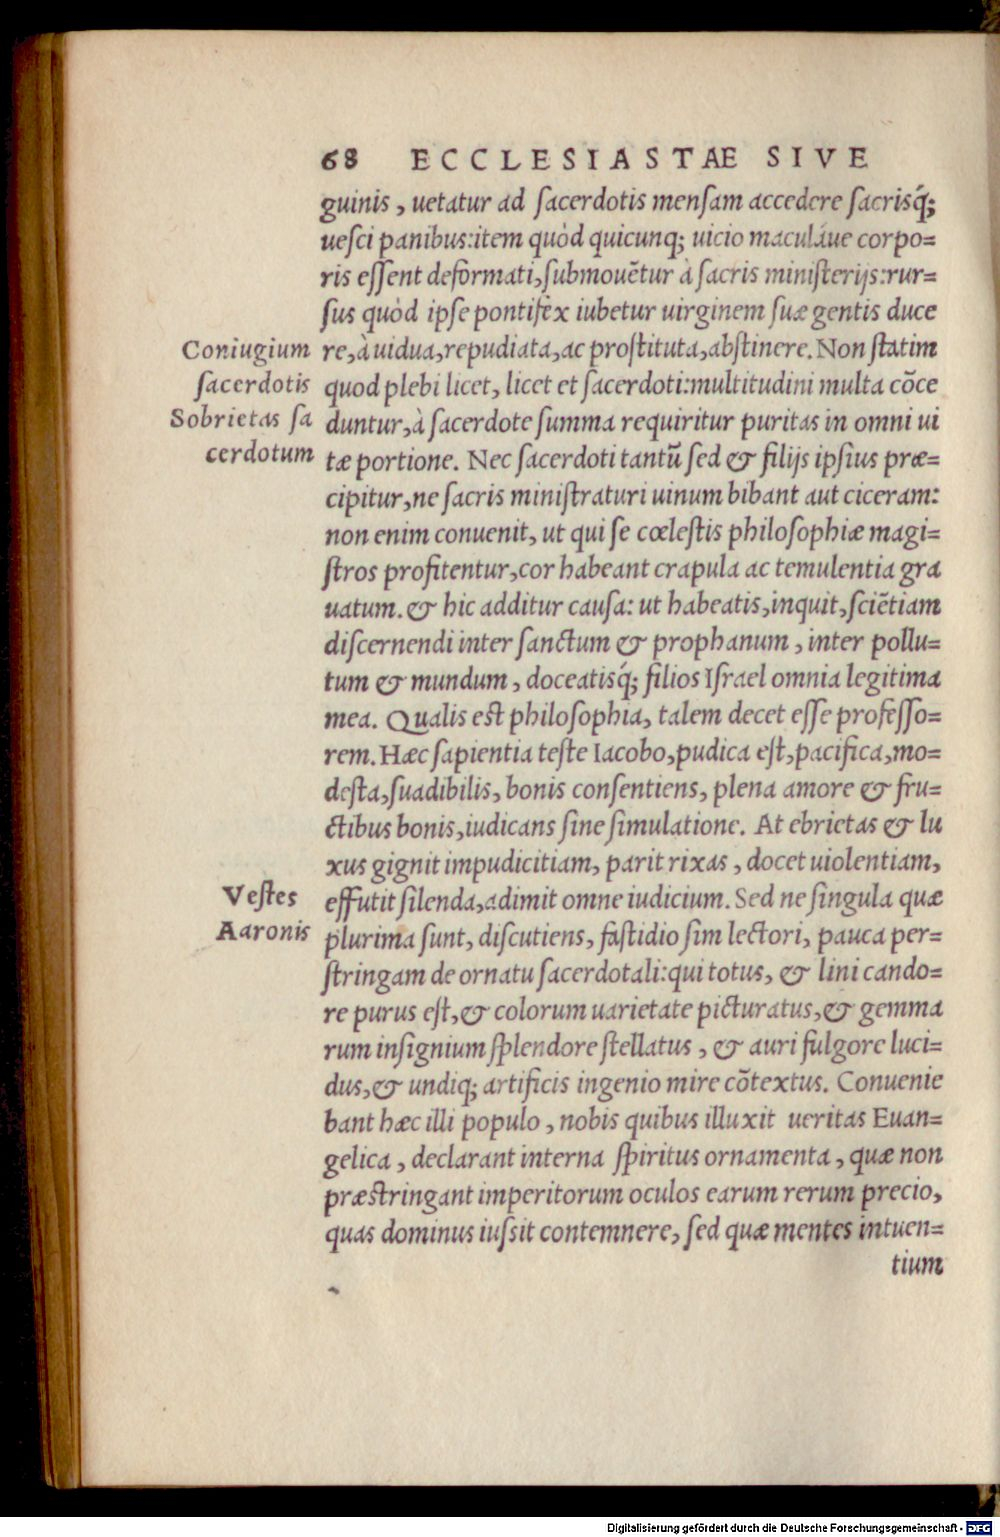 68 ECCLESIASTAE SIVE
guinis, uetatur ad ſacerdotis menſam accedere ſacrisq́;
ueſci panibus:item quòd quicunq; uicio maculáue corpo=
ris eſſent deformati,ſubmouẽtur à ſacris miniſterijs:rur=
ſus quòd ipſe pontifex iubetur uirginem ſuæ gentis duce
Coniugium
ſacerdotis
re,à uidua,repudiata,ac proſtituta,abſtinere. Non ſtatim
quod plebi licet, licet et ſacerdoti:multitudini multa cõce
Sobrietas ſa
cerdotum
duntur,à ſacerdote ſumma requiritur puritas in omni ui
tæ portione. Nec ſacerdoti tantũ ſed & filijs ipſius præ=
cipitur,ne ſacris miniſtraturi uinum bibant aut ciceram:
non enim conuenit, ut qui ſe cœleſtis philoſophiæ magi=
ſtros profitentur,cor habeant crapula ac temulentia gra
uatum. & hic additur cauſa: ut habeatis,inquit,ſciẽtiam
diſcernendi inter ſanctum & prophanum, inter pollu=
tum & mundum, doceatisq́; filios Iſrael omnia legitima
mea. Qualis est philoſophia, talem decet eſſe profeſſo=
rem. Hæc ſapientia teſte Iacobo,pudica eſt,pacifica,mo=
deſta,ſuadibilis, bonis conſentiens, plena amore & fru=
ctibus bonis,iudicans ſine ſimulatione. At ebrietas & lu
xus gignit impudicitiam, parit rixas, docet uiolentiam,
Veſtes
Aaronis
effutit ſilenda,adimit omne iudicium. Sed ne ſingula quæ
plurima ſunt, diſcutiens, faſtidio ſim lectori, pauca per=
ſtringam de ornatu ſacerdotali:qui totus, & lini cando=
re purus eſt,& colorum uarietate picturatus,& gemma
rum inſignium ſplendore ſtellatus, & auri fulgore luci=
dus,& undiq; artificis ingenio mire cõtextus. Conuenie
bant hæc illi populo, nobis quibus illuxit ueritas Euan=
gelica, declarant interna ſpiritus ornamenta, quæ non
præstringant imperitorum oculos earum rerum precio,
quas dominus iuſsit contemnere, ſed quæ mentes intuen=
tium
Digitalisierung gefördert durch die Deutsche Forschungsgemeinschaft - DFG